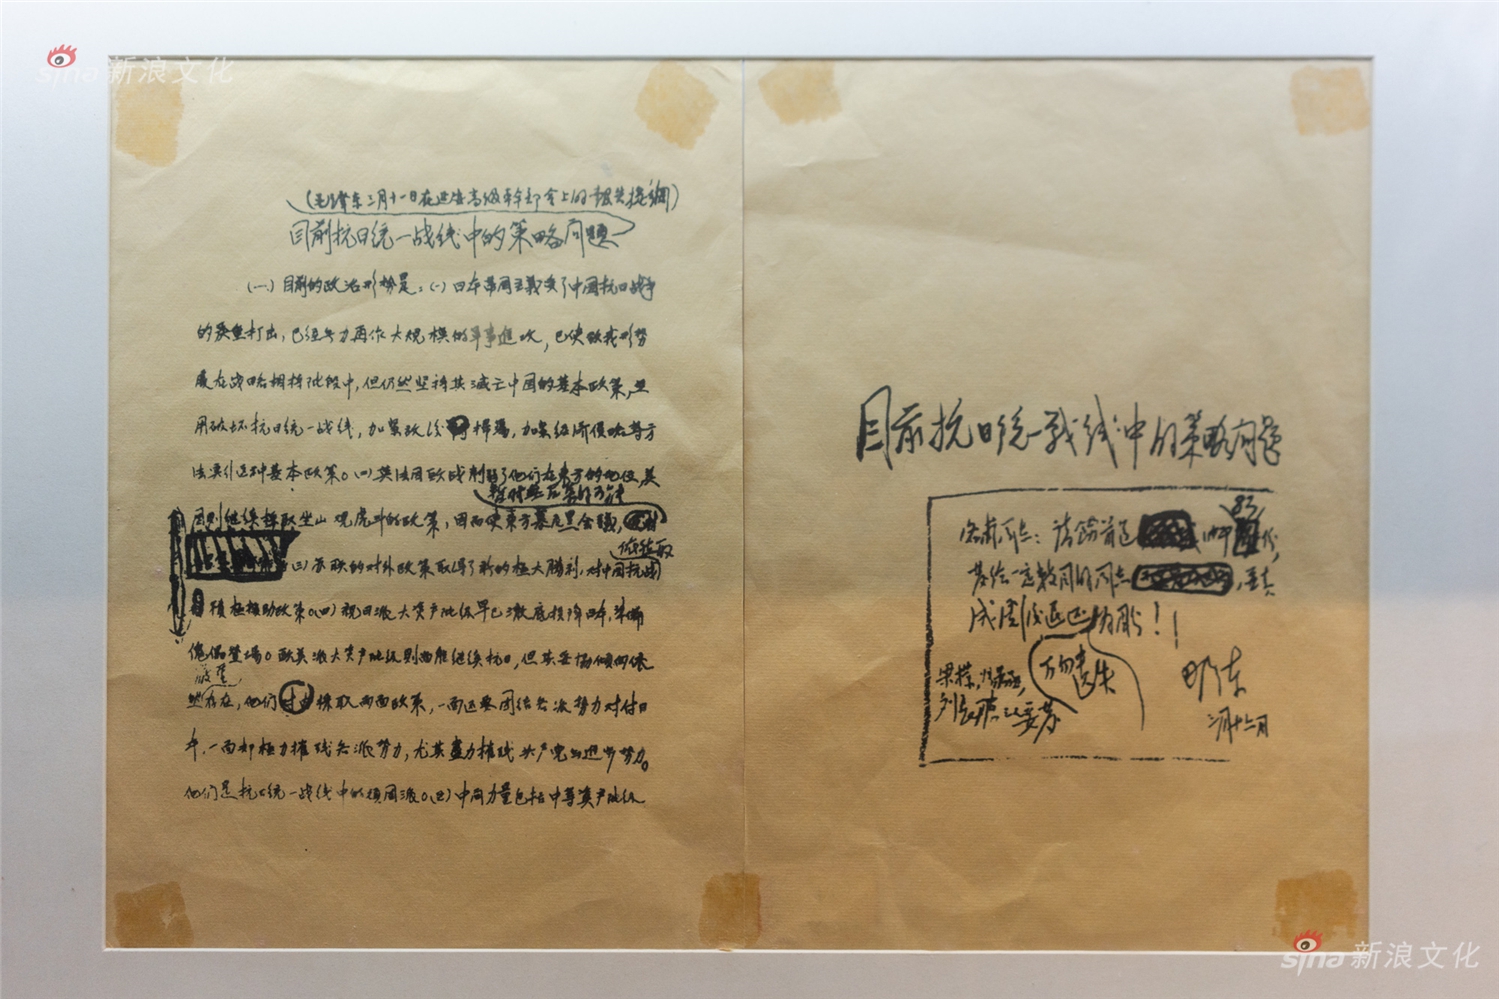 sina 新浪文化
(毛泽东三月十一日在延安高级干部会上的报告提纲)
目前抗日统一战线中的策略问题
(一)目前的政治形势是：(一)日本帝国主义受了中国抗日战争
的严重打击，已经无力再作大规模的军事進攻，已使敌我形势
处在战略相持阶段中，但仍然坚持其滅亡中国的基本政策，並
用破坏抗日统一战线，加紧敌後掃蕩，加紧经济侵略等方
法实行这种基本政策。(二)英法因欧战削弱了他们在東方的地位，美
国则继续採取坐山观虎斗的政策，因而使東方慕尼黑会議，
暂时无
依然取
(三)苏联的对外政策取得了新的極大勝利，对中国抗战
積極援助政策。(四)親日派大资产阶级早已澈底投降日本，準備
傀儡登場。欧美派大资产阶级则尚能继续抗日，但其妥协倾向依
然存在，他们採取两面政策，一面还要团结各派势力对付日
本，一面却極力摧残各派势力，尤其盡力摧残共产党与进步势力。
他们是抗日统一战线中的頑固派。(五)中间力量包括中等资产阶级
目前抗日统一战线中的策略问题
成 後退还为盼！！
万勿遗失
三月十二日
sina 新浪文化